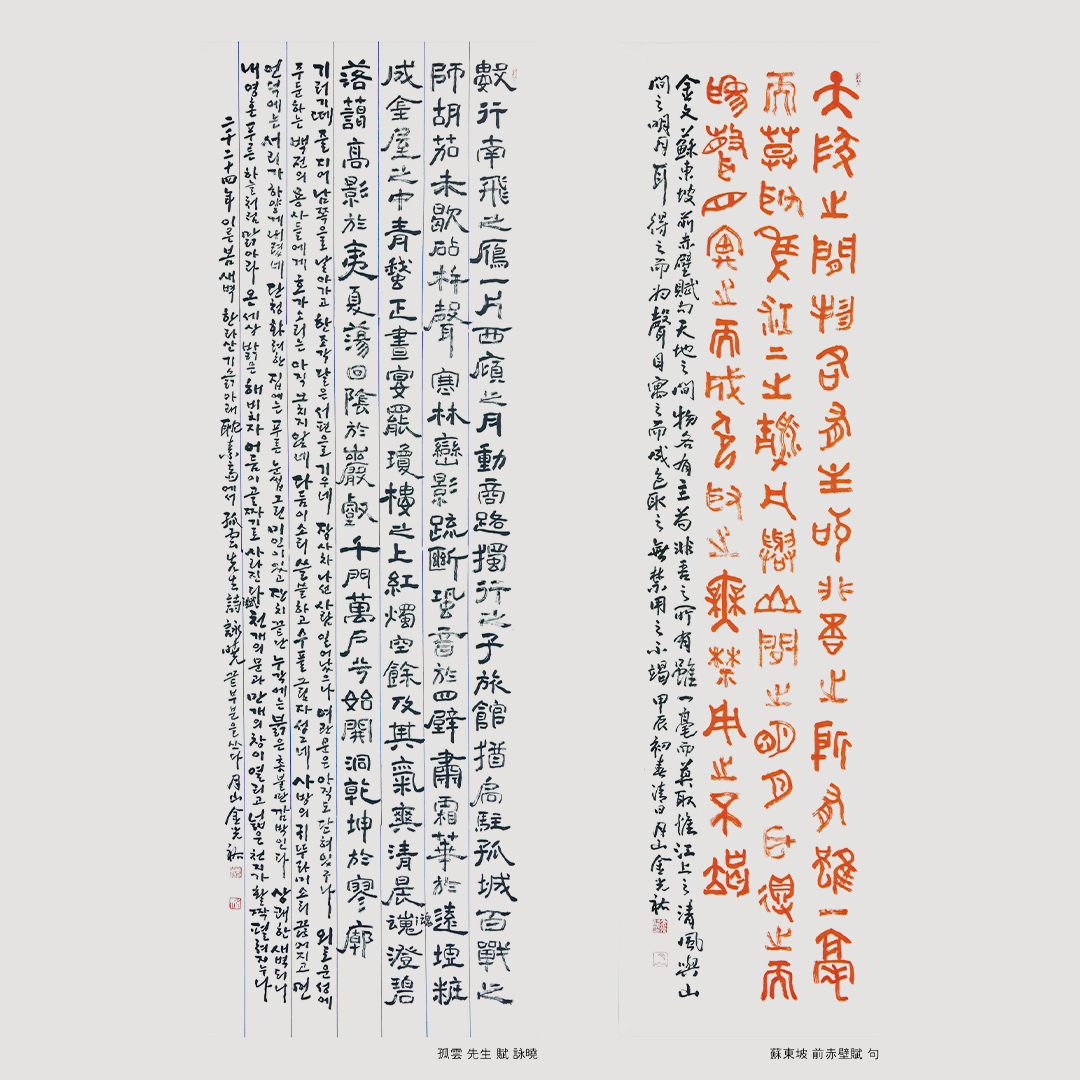 天地之間物各有主苟非吾之所有雖一毫
而莫取隹江上之清風與山間之明月耳得之而
為聲目寓之而成色取之無禁用之不竭
金文蘇東坡前赤壁賦句天地之間物各有主苟非吾之所有雖一毫而莫取惟江上之清風與山
間之明月耳得之而為聲目寓之而成色取之無禁用之不竭 甲辰初春清日月山金光祐
蘇東坡 前赤壁賦 句
數行南飛之鴈一片西傾之月動商路獨行之子旅館猶扃駐孤城百戰之
師胡茄未歇砧杵聲寒林巒影疏斷蛩音於四壁肅霜華於遠墟粧
成金屋之中青蛾正晝宴罷瓊樓之上紅燭空餘及其氣爽清晨魂澄碧
落藹高影於夷夏蕩回陰於巖壑千門萬戶兮始開洞乾坤於寥廓
기러기떼 줄지어 남쪽으로 날아가고 한조각 달은 서편으로 기우네 장사차 나선 사람 일어났으나 여관문은 아직도 닫혀있구나 외로운 성에
주둔하는 백전의 용사들에게 호가소리는 아직 그치지 않네 다듬이소리 쓸쓸하고 수풀그림자 성그네 사방의 귀뚜라미소리 끊어지고 먼
언덕에는 서리가 하얗게 내렸네 단청 화려한 집에는 푸른 눈썹 그린 미인이 있고 잔치 끝난 누각에는 붉은 촛불만 감박인다 상쾌한 새벽되니
내 영혼 푸른 하늘처럼 맑아라 온세상 밝은 해비치자 어둠이 골짜기로 사라진다 천개의 문과 만개의 창이 열리고 넓은 천지가 활짝 펼쳐지누나
二千二十四年 이른봄 새벽 한라산 기슭아래 에서 孤雲先生詩 詠曉 끝부분을 쓰다 月山 金光祐
孤雲 先生 賦 詠曉